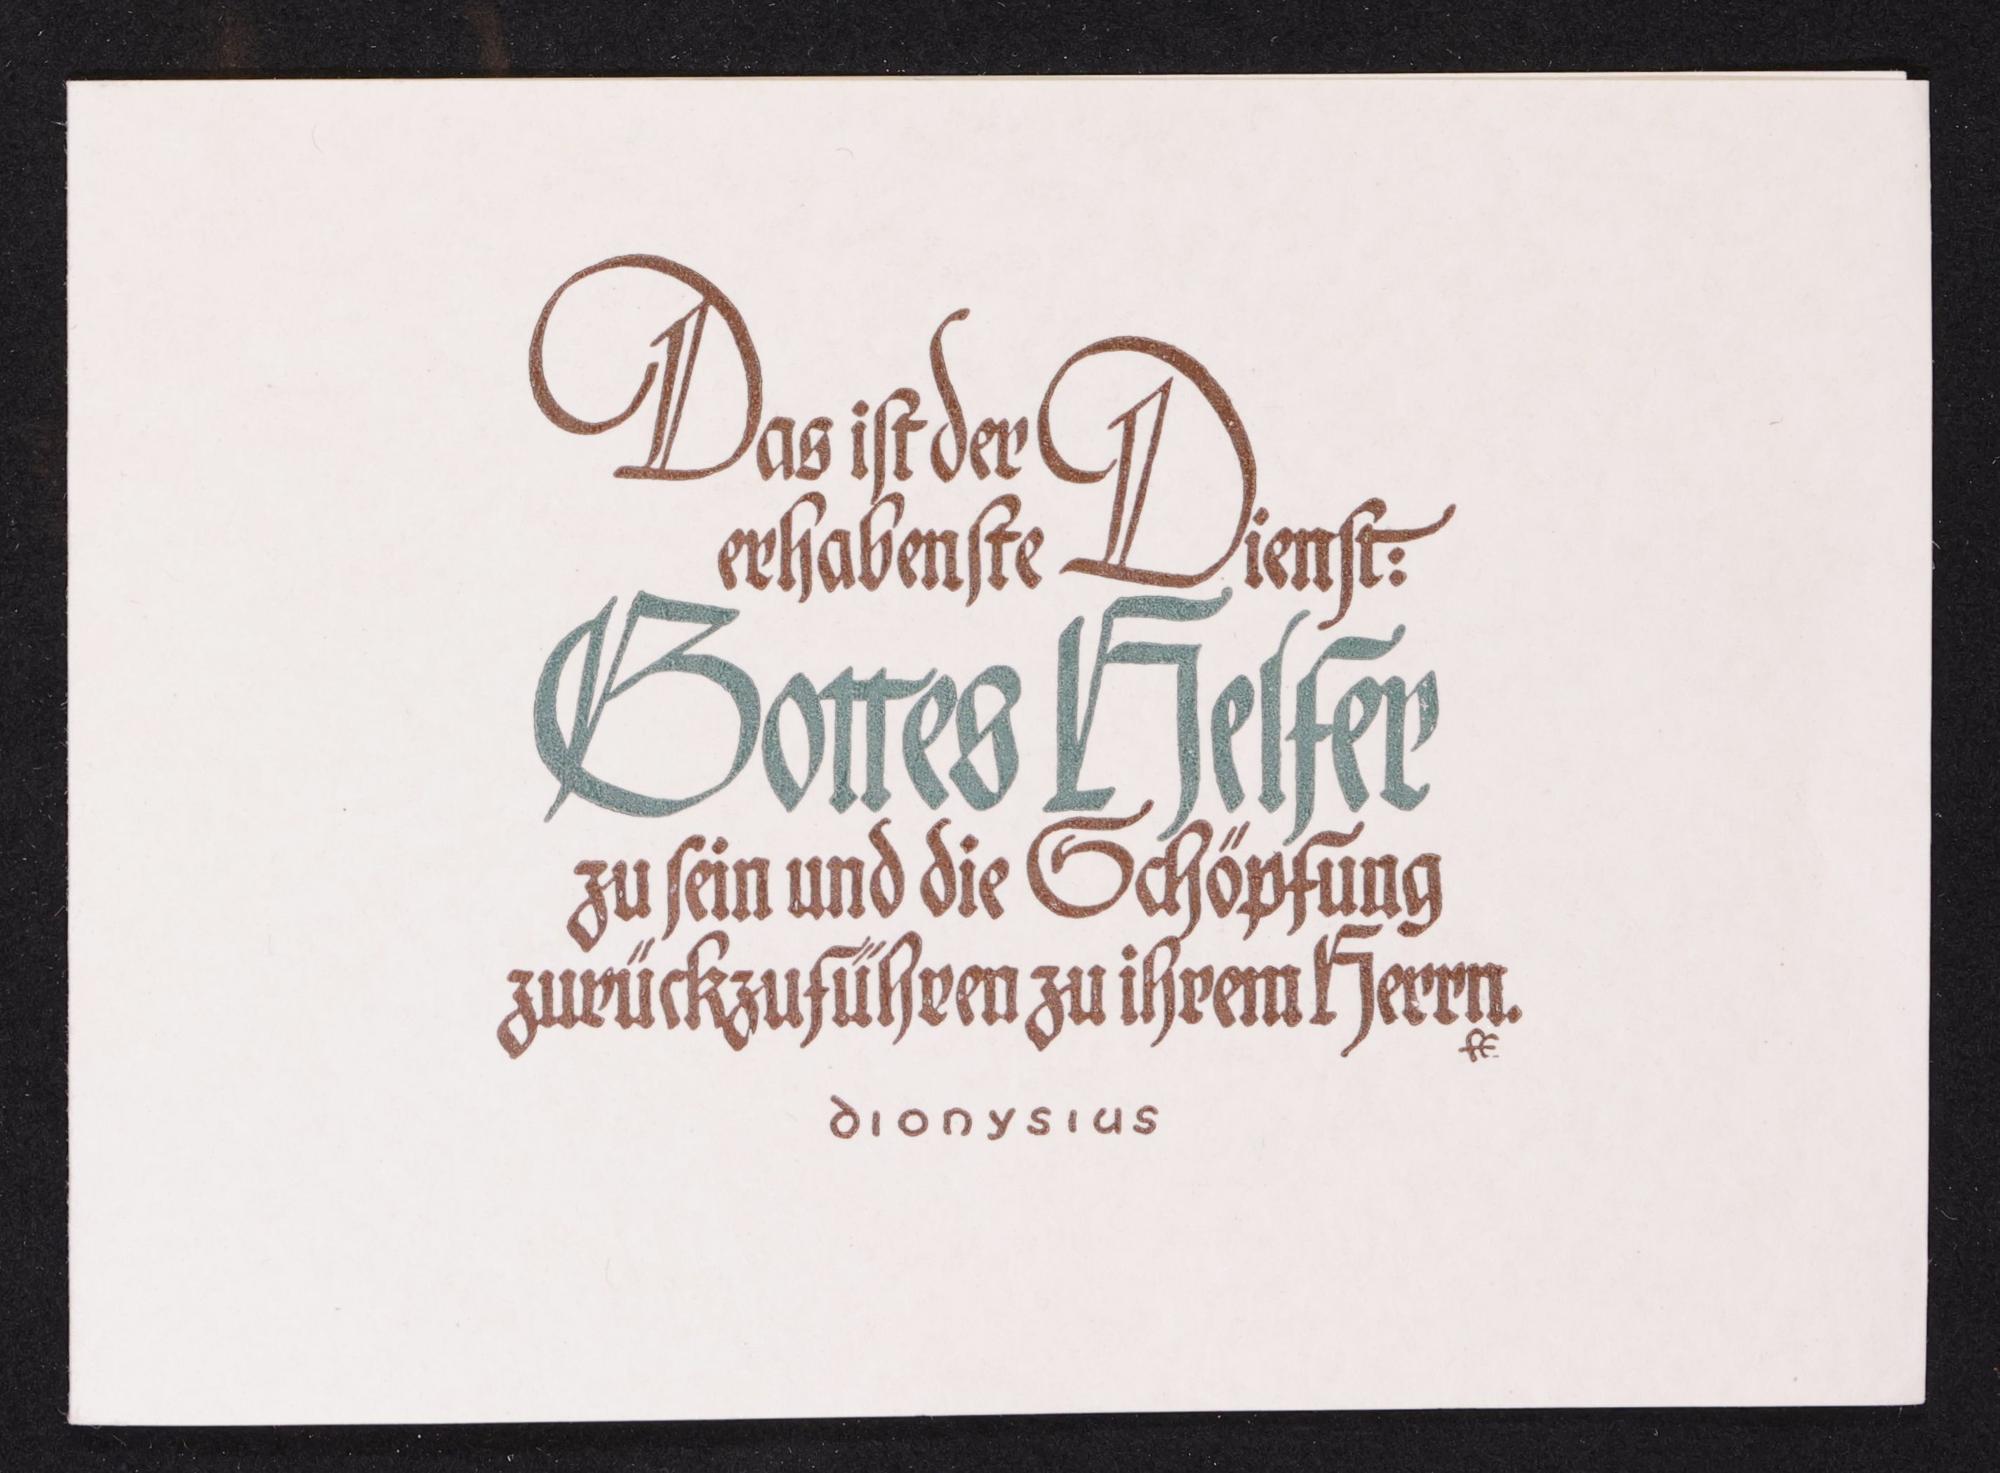 Das ist der
erhabenste Dienst:
Gottes Helfer
zu sein und die Schöpfung
zurückzuführen zu ihrem Herrn.
dionysius